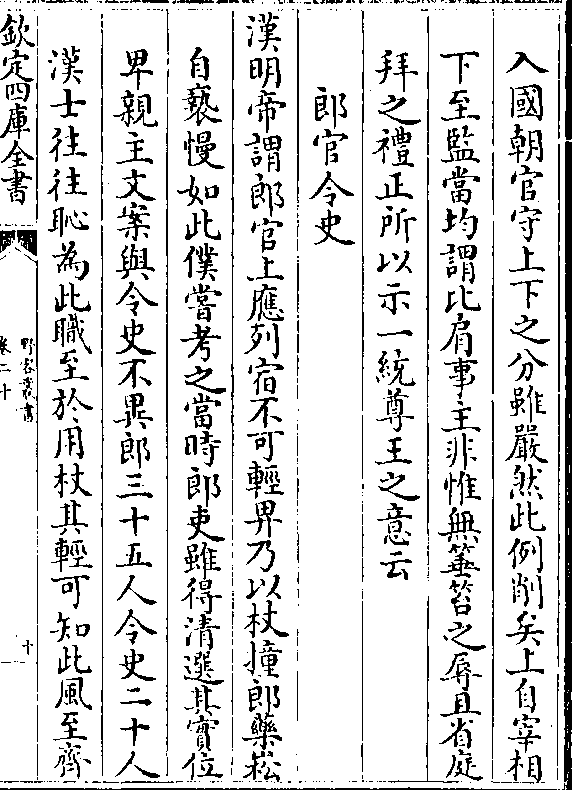 入國朝官守上下之分雖嚴然此例削矣上自宰相
下至監當均謂比肩事主非惟無箠笞之辱且省庭
拜之禮正所以示一統尊王之意云
郎官令史
漢明帝謂郎官上應列宿不可輕畀乃以杖撞郎藥崧
自褻慢如此僕嘗考之當時郎吏雖得清選其實位
卑親主文案與令史不異郎三十五人令史二十人
漢士往往恥為此職至於用杖其輕可知此風至齊
欽定四庫全書
野客叢書
卷二十
十一